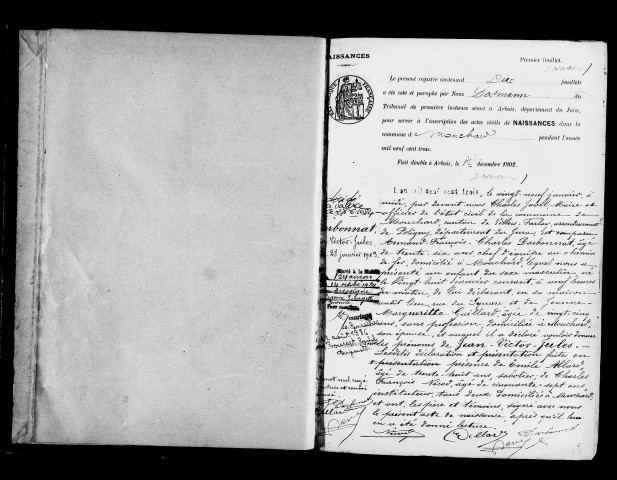 NAISSANCES
Premier feuillet.
Le présent registre contenant Dix feuillets
a été coté et paraphé par Nous Dosmann du
Tribunal de première instance séant à Arbois, département du Jura,
pour servir à l'inscription des actes civils de NAISSANCES dans la
commune de Mouchard pendant l'année
mil neuf cent trois.
Fait double à Arbois, le 1er décembre 1902.
L'an mil neuf cent trois, le vingt-neuf janvier, à
midi, par devant nous Charles Maire et
officier de l'état civil de la commune de
Mouchard, canton de Villers-Farlay, arrondissement
de Poligny, département du Jura, est comparu
Armand-François-Charles Darbonnat, âgé
de trente-six ans, chef d'équipe au chemin
de fer, domicilié à Mouchard, lequel nous a
présenté un enfant du sexe masculin né
le vingt huit janvier courant, à neuf heures
du matin, de lui déclarant, en sa maison
audit lieu, et de Jeanne-
Marguerite Guillard, âgée de vingt cinq
ans, sans profession, domiciliée à Mouchard,
son épouse, et auquel il a déclaré vouloir donner
les prénoms de Jean-Victor-Jules.
Lesdites déclaration et présentation faites en
présence de Emile
âgé de trente-huit ans, sabotier, de Charles
François Nicod, âgé de cinquante-sept ans,
instituteur, tous deux domiciliés à Mouchard,
et ont, les père et témoins, signé avec nous
le présent acte de naissance après qu'il leur
en a été donné lecture.
Darbonnat,
Victor-Jules,
28 janvier 1903
mariage